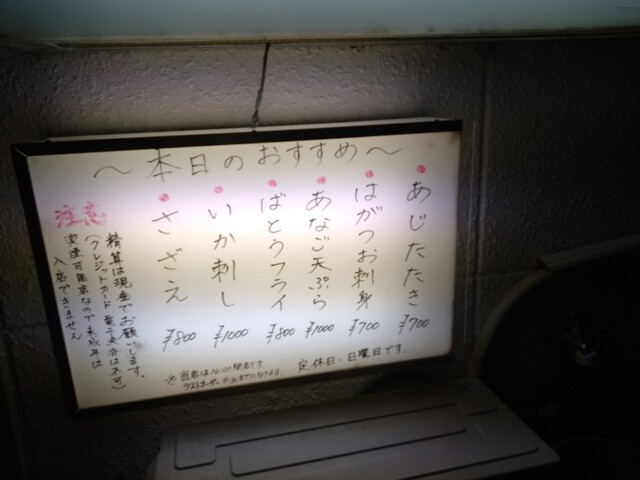 ～本日のおすすめ～
・あじたたき ¥700
・はがつお刺身 ¥700
・あなご天ぷら ¥1000
・ばとうフライ ¥800
・いか刺し ¥1000
・さざえ ¥800
注意
精算は現金でお願いします。
(クレジットカード 電子決済は不可)
喫煙可能店なので未成年は
入店できません
定休日・日曜日です.
※当店は10:00閉店です
ラストオーダー